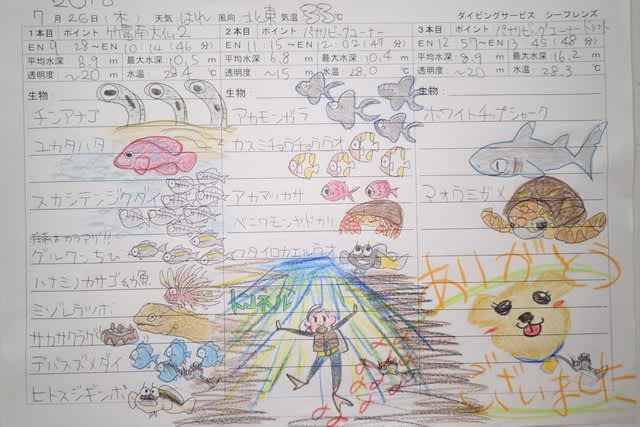 2018
7月26日(木) 天気 はれ 風向 北東 気温 33℃ ダイビングサービス シーフレンズ
1本目 ポイント 竹富南大仏2
EN 9:28~EN 10:14 (46分)
平均水深 8.9m 最大水深 10.5m
透明度 ~20m 水温 28.4℃
生物
チンアナゴ
ユカタハタ
スカシテンジクダイ
グルクンちび
ハナミノカサゴ幼魚
ミゾレウツボ
デバスズメダイ
ヒトスジギンポ
2本目 ポイント パナリビッグコーナー
EN 11:15~EN 12:02 (47分)
平均水深 6.8m 最大水深 10.4m
透明度 ~15m 水温 28.0℃
生物
アカモンガラ
カスミチョウチョウウオ
アカマツカサ
ベニワモンヤドカリ
クダイロカエルウオ
トンネル
3本目 ポイント パナリビッグコーナー
EN 12:57~EN 13:45 (48分)
平均水深 8.9m 最大水深 16.2m
透明度 ~20m 水温 28.3℃
生物
ホワイトチップシャーク
アオウミガメ
ありがとう
ございました